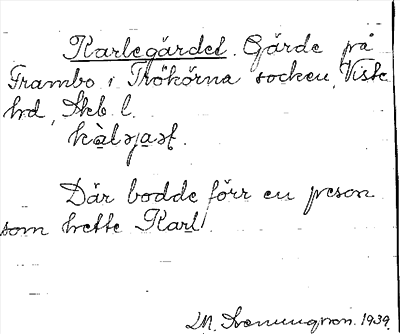 Karlegärdet. Gärde på
Frambo i Trökörna socken, Viste
hd, Skb. l.
kàlɘjaʂt.
Där bodde förr en preson
som hette Karl.
M. Svenungson. 1939.